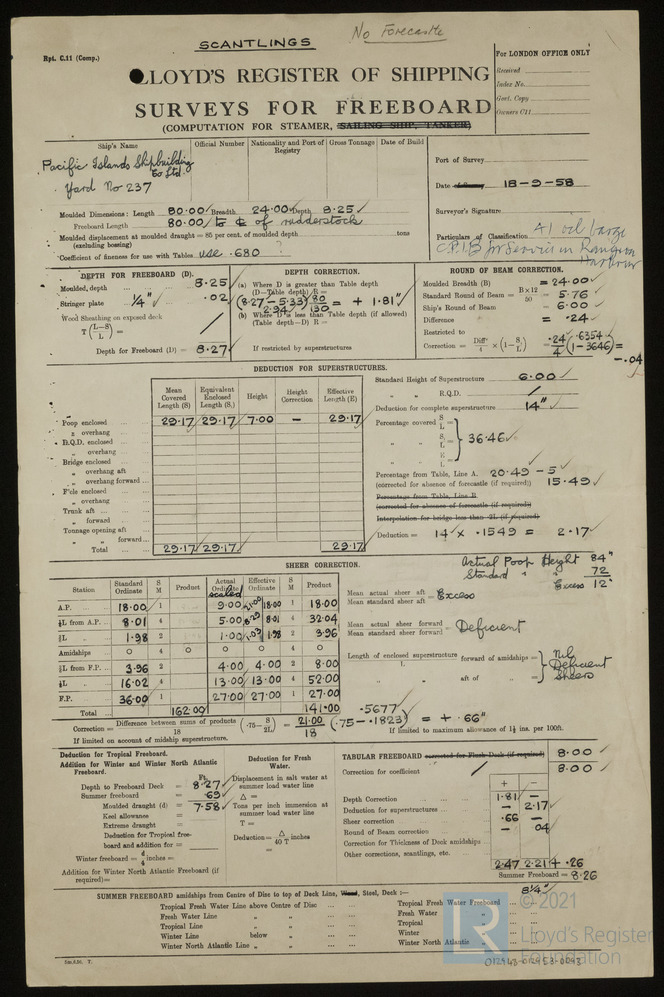 SCANTLINGS
No Forecastle
Rpt. C.11 (Comp.)
LLOYD'S REGISTER OF SHIPPING
SURVEYS FOR FREEBOARD
(COMPUTATION FOR STEAMER, SAILING SHIP, TANKER)
For LONDON OFFICE ONLY
Received
Index No.
Govt. Copy
Owners C11
Ship's Name
Official Number
Nationality and Port of Registry
Gross Tonnage
Date of Build
Pacific Islands Shipbuilding
Co Ltd.
Yard No 237
Port of Survey
Date 18-9-58
Surveyor's Signature
Particulars of Classification A1 oil barge
C.P.1.B for Service in Rangoon
Harbour
Moulded Dimensions: Length 80.00 Breadth 24.00 Depth 8.25
Freeboard Length 80.00 to ℄ of rudderstock
Moulded displacement at moulded draught = 85 per cent. of moulded depth tons
(excluding bossing)
Coefficient of fineness for use with Tables use .680 ?
DEPTH FOR FREEBOARD (D).
Moulded, depth 8.25
Stringer plate 1/4" .02
Wood Sheathing on exposed deck
T (L-S/L) = /
Depth for Freeboard (D) = 8.27
DEPTH CORRECTION.
(a) Where D is greater than Table depth
(D—Table depth) R =
(8.27 - 5.33) 80/130 = + 1.81"
2.94
(b) Where D is less than Table depth (if allowed)
(Table depth—D) R =
If restricted by superstructures
ROUND OF BEAM CORRECTION.
Moulded Breadth (B) = 24.00
Standard Round of Beam = B×12/50 = 5.76
Ship's Round of Beam = 6.00
Difference = .24
Restricted to
Correction = Diff/4 × (1-S/L) = .24/4 (1-.3646) = -.04
.6354
DEDUCTION FOR SUPERSTRUCTURES.
Mean Covered Length (S)
Equivalent Enclosed Length (S₁)
Height
Height Correction
Effective Length (E)
Poop enclosed 29.17 29.17 7.00 — 29.17
„ overhang
R.Q.D. enclosed
„ overhang
Bridge enclosed
„ overhang aft
„ overhang forward
F'cle enclosed
„ overhang
Trunk aft
„ forward
Tonnage opening aft
„ „ forward
Total 29.17 29.17 29.17
Standard Height of Superstructure 6.00
„ „ R.Q.D. /
Deduction for complete superstructure 14"
Percentage covered S/L =
„ „ S₁/L = } 36.46
„ „ E/L =
Percentage from Table, Line A. 20.49 - 5
(corrected for absence of forecastle (if required)) 15.49
Percentage from Table, Line B
(corrected for absence of forecastle (if required))
Interpolation for bridge less than .2L (if required)
Deduction = 14 × .1549 = 2.17
SHEER CORRECTION.
Station
Standard Ordinate
S M
Product
Actual Ordinate
scaled
Effective Ordinate
S M
Product
A.P. 18.00 1 9.00 18.00 1 18.00
1/6L from A.P. 8.01 4 5.00 8.01 4 32.04
1/3L „ 1.98 2 1.00 1.98 2 3.96
Amidships 0 4 0 0 0 4 0
1/3L from F.P. 3.96 2 4.00 4.00 2 8.00
1/6L „ 16.02 4 13.00 13.00 4 52.00
F.P. 36.00 1 27.00 27.00 1 27.00
Total 162.00 141.00
Actual Poop Height 84"
Standard „ „ 72
Excess 12"
Mean actual sheer aft
Mean standard sheer aft = Excess
Mean actual sheer forward
Mean standard sheer forward = Deficient
Length of enclosed superstructure/L forward of amidships = Nil
„ „ aft of „ =
Deficient
Sheers
Correction = Difference between sums of products/18 (.75-S/2L) = 21.00/18 (.75 - .1823) = + .66"
.5677
If limited on account of midship superstructure.
If limited to maximum allowance of 1½ ins. per 100ft.
Deduction for Tropical Freeboard.
Addition for Winter and Winter North Atlantic Freeboard.
Ft.
Depth to Freeboard Deck = 8.27
Summer freeboard = .69
Moulded draught (d) = 7.58
Keel allowance =
Extreme draught =
Deduction for Tropical freeboard and addition for =
Winter freeboard = d/4 inches =
Addition for Winter North Atlantic Freeboard (if required)=
Deduction for Fresh Water.
Displacement in salt water at summer load water line
Δ =
Tons per inch immersion at summer load water line
T =
Deduction = Δ/40 T inches
=
TABULAR FREEBOARD corrected for Flush Deck (if required) 8.00
Correction for coefficient / 8.00
+ —
Depth Correction 1.81 —
Deduction for superstructures — 2.17
Sheer correction .66 —
Round of Beam correction — .04
Correction for Thickness of Deck amidships
Other corrections, scantlings, etc.
2.47 2.21 + .26
Summer Freeboard = 8.26
8¼"
SUMMER FREEBOARD amidships from Centre of Disc to top of Deck Line, Wood, Steel, Deck :—
Tropical Fresh Water Line above Centre of Disc
Fresh Water Line „ „
Tropical Line „ „
Winter Line below „
Winter North Atlantic Line „ „
Tropical Fresh Water Freeboard
Fresh Water „
Tropical „
Winter „
Winter North Atlantic „
© 2021
LR
Lloyd's Register
Foundation
012948-012953-0043